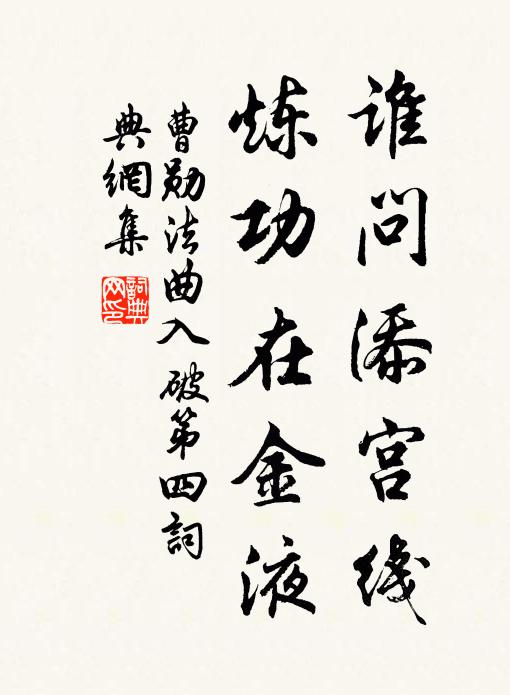 谁问添宫线
炼功在金液
曹勋法曲入破第四詞
典網集
詞典
网印